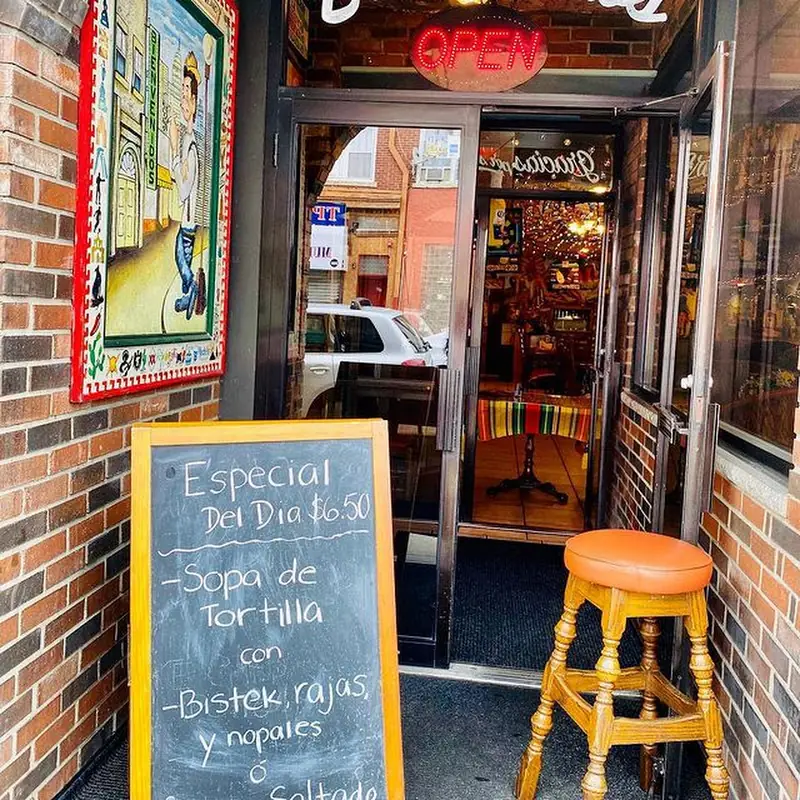 OPEN
Gracias
Especial
Del Dia $6.50
-Sopa de
Tortilla
con
-Bistek, rajas,
y nopales
ó
Saltado